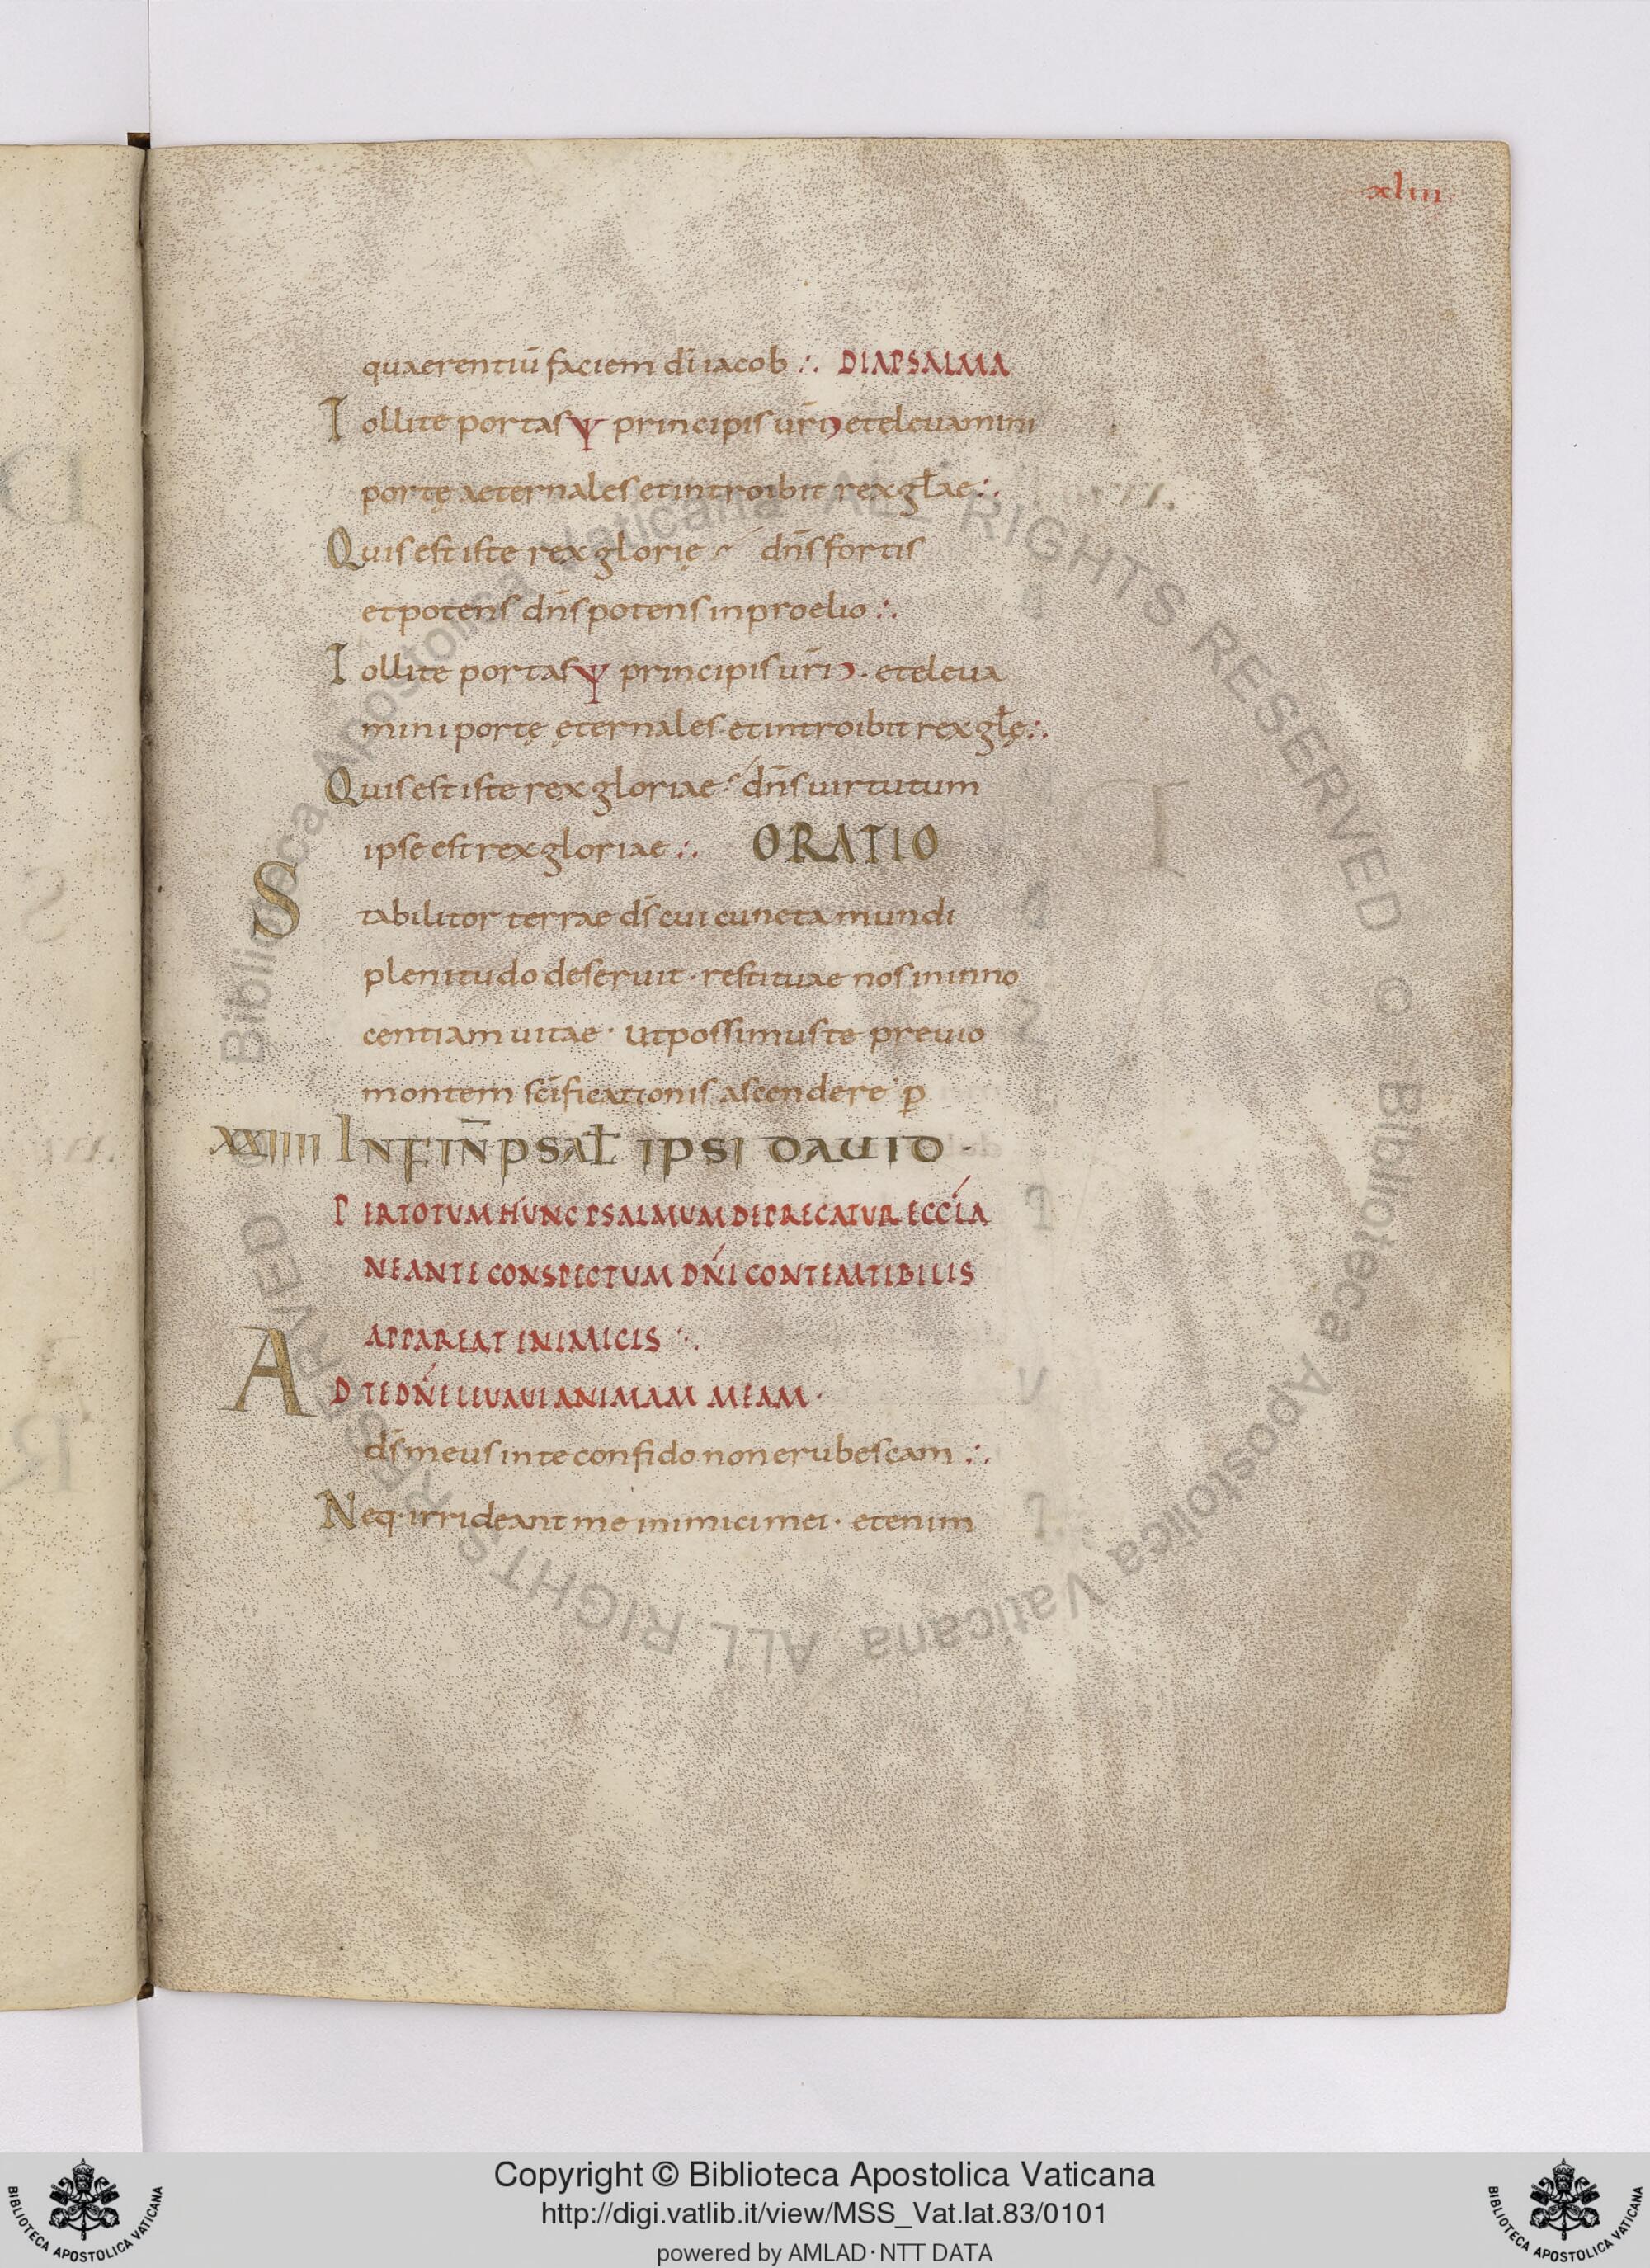 xliii
quaerentiū faciem dī iacob :. DIAPSALMA
Tollite portas Ψ principis ur̄i Ͻ et eleuamini
portę aeternales et introibit rex gl̄ae :.
Quis est iste rex glorię dn̄s fortis
et potens dn̄s potens in proelio :.
Tollite portas Ψ principis ur̄i Ͻ · et eleua
mini portę ęternales · et introibit rex gl̄ę :.
Quis est iste rex gloriae · dn̄s uirtutum
ipse est rex gloriae :. ORATIO
Stabilitor terrae ds̄ cui cuncta mundi
plenitudo deseruit · restituae nos in inno
centiam uitae · Ut possimus te preuio
montem sc̄ificationis ascendere p̄
XXIIII IN FIN̄ PSAL̄ IPSI DAUID ·
PER TOTUM HUNC PSALMUM DEPRECATUR ECCĪA
NE ANTE CONSPECTUM DN̄I CONTEMTIBILIS
APPAREAT INIMICIS :.
AD TE DN̄E LEUAUI ANIMAM MEAM ·
ds̄ meus in te confido non erubescam :.
Neq · irrideant me inimici mei · etenim
Copyright © Biblioteca Apostolica Vaticana
http://digi.vatlib.it/view/MSS_Vat.lat.83/0101
powered by AMLAD·NTT DATA
BIBLIOTECA APOSTOLICA VATICANA
BIBLIOTECA APOSTOLICA VATICANA
© Biblioteca Apostolica Vaticana ALL RIGHTS RESERVED © Biblioteca Apostolica Vaticana ALL RIGHTS RESERVED